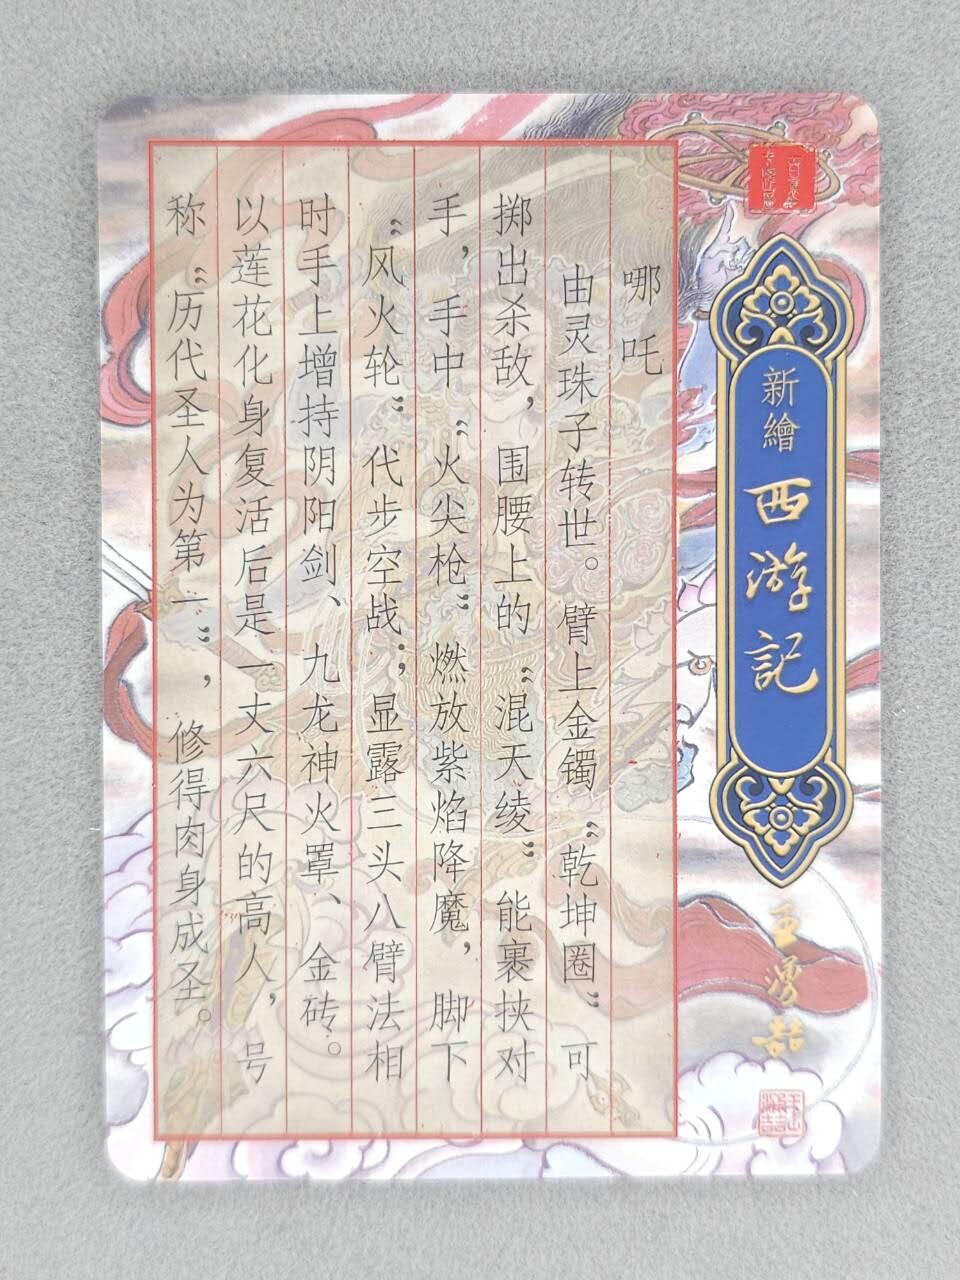 新繪
西游記
哪吒
由灵珠子转世。臂上金镯“乾坤圈”可
掷出杀敌，围腰上的“混天绫”能裹挟对
手，手中“火尖枪”燃放紫焰降魔，脚下
“风火轮”代步空战；显露三头八臂法相
时手上增持阴阳剑、九龙神火罩、金砖。
以莲花化身复活后是一丈六尺的高人，号
称“历代圣人为第一”，修得肉身成圣。